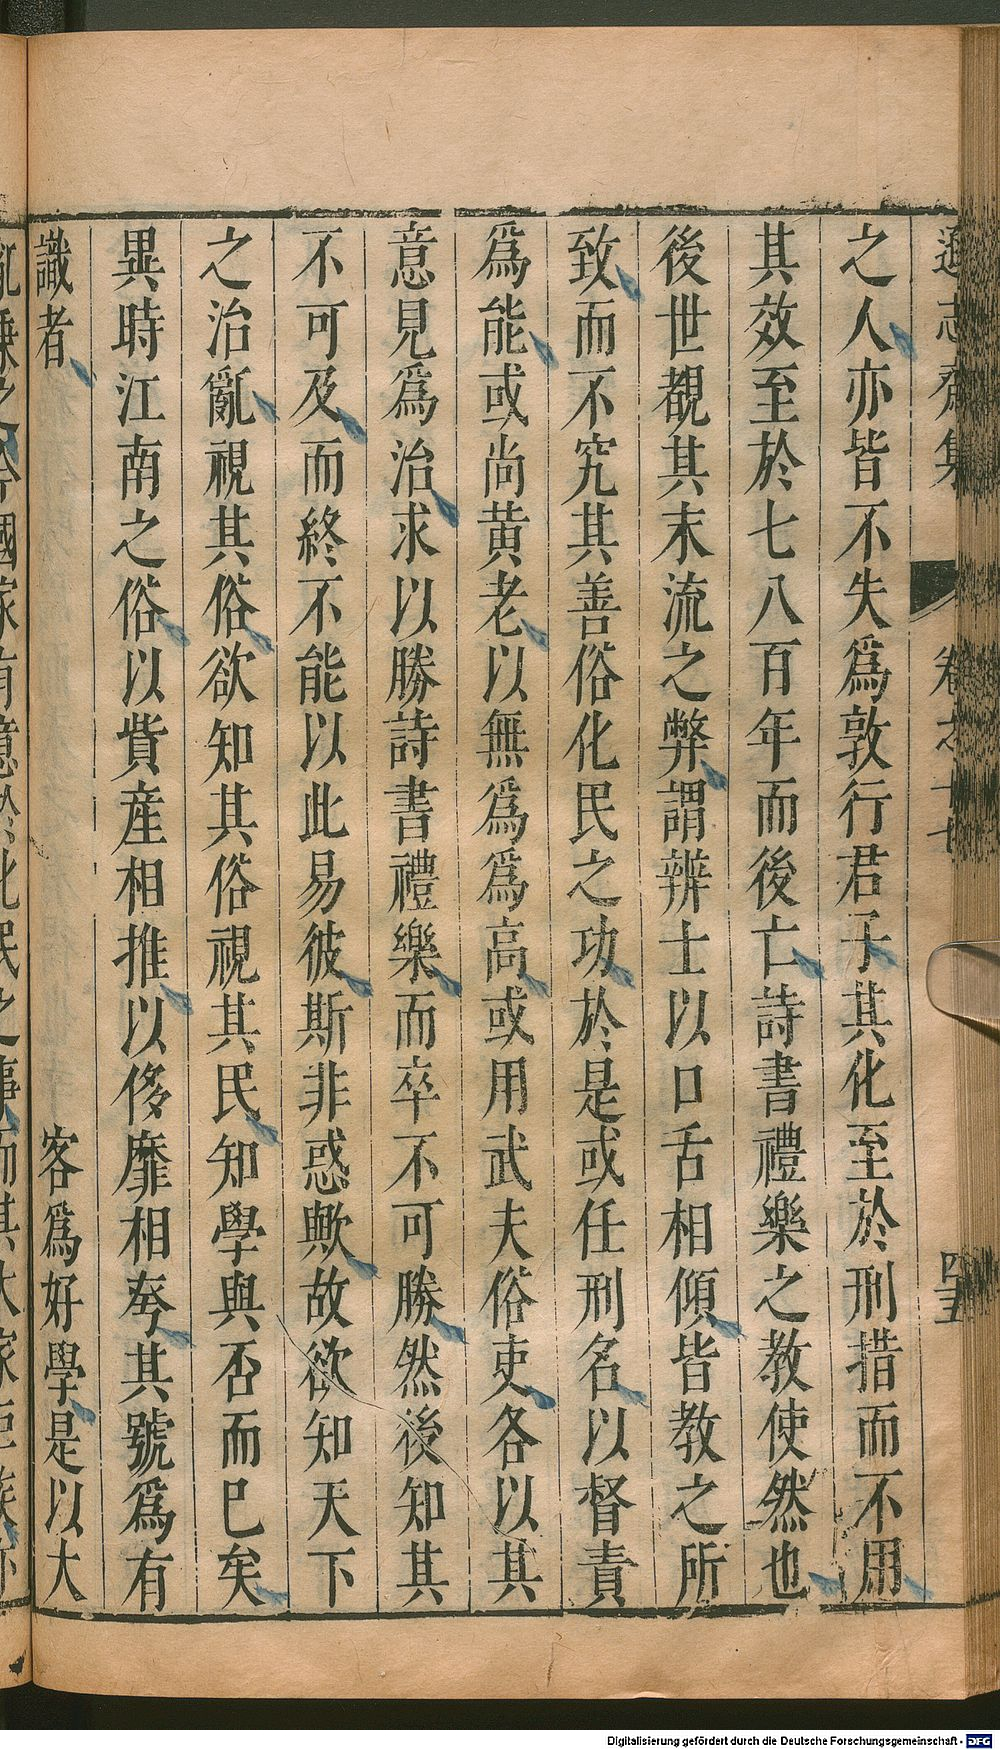 遜志齋集 卷之十七 四五
之人亦皆不失爲敦行君子其化至於刑措而不用
其效至於七八百年而後亡詩書禮樂之教使然也
後世覩其末流之弊謂辨士以口舌相傾皆教之所
致而不究其善俗化民之功於是或任刑名以督責
爲能或尚黄老以無爲爲高或用武夫俗吏各以其
意見爲治求以勝詩書禮樂而卒不可勝然後知其
不可及而終不能以此易彼斯非惑歟故欲知天下
之治亂視其俗欲知其俗視其民知學與否而已矣
異時江南之俗以貲產相推以侈靡相夸其號爲有
識者 客爲好學是以大
之 國家有意於化民之事而其大家巨族亦
Digitalisierung gefördert durch die Deutsche Forschungsgemeinschaft - DFG